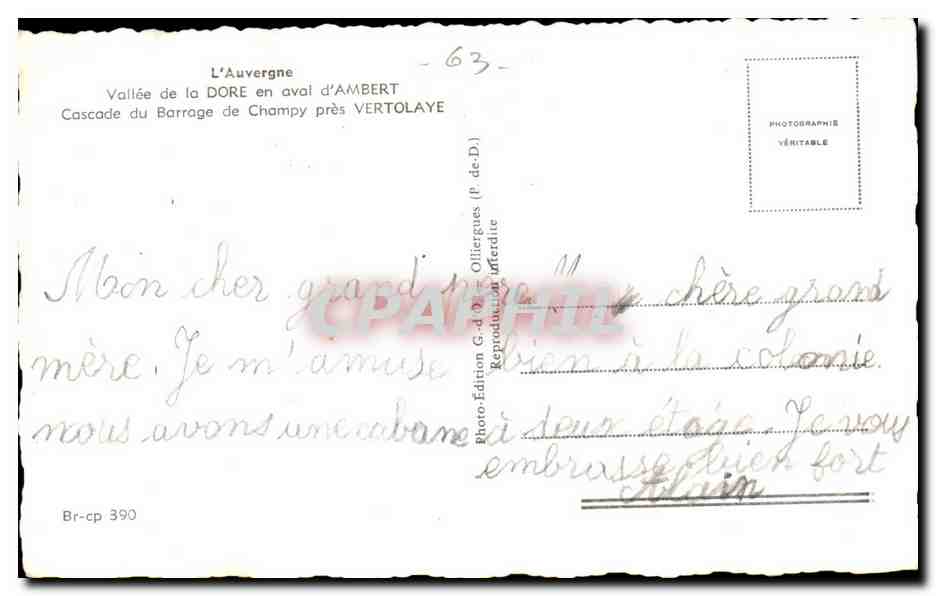 - 63 -
L'Auvergne
Vallée de la DORE en aval d'AMBERT
Cascade du Barrage de Champy près VERTOLAYE
PHOTOGRAPHIE
VÉRITABLE
Photo-Édition G. d'O. = Olliergues (P.-de-D.)
Reproduction interdite
Mon cher grand père Ma chère grand
mère. Je m'amuse bien à la colonie.
nous avons une cabane à deux étage. Je vous
embrasse bien fort
Alain
Br-cp 390
CPAPHIL